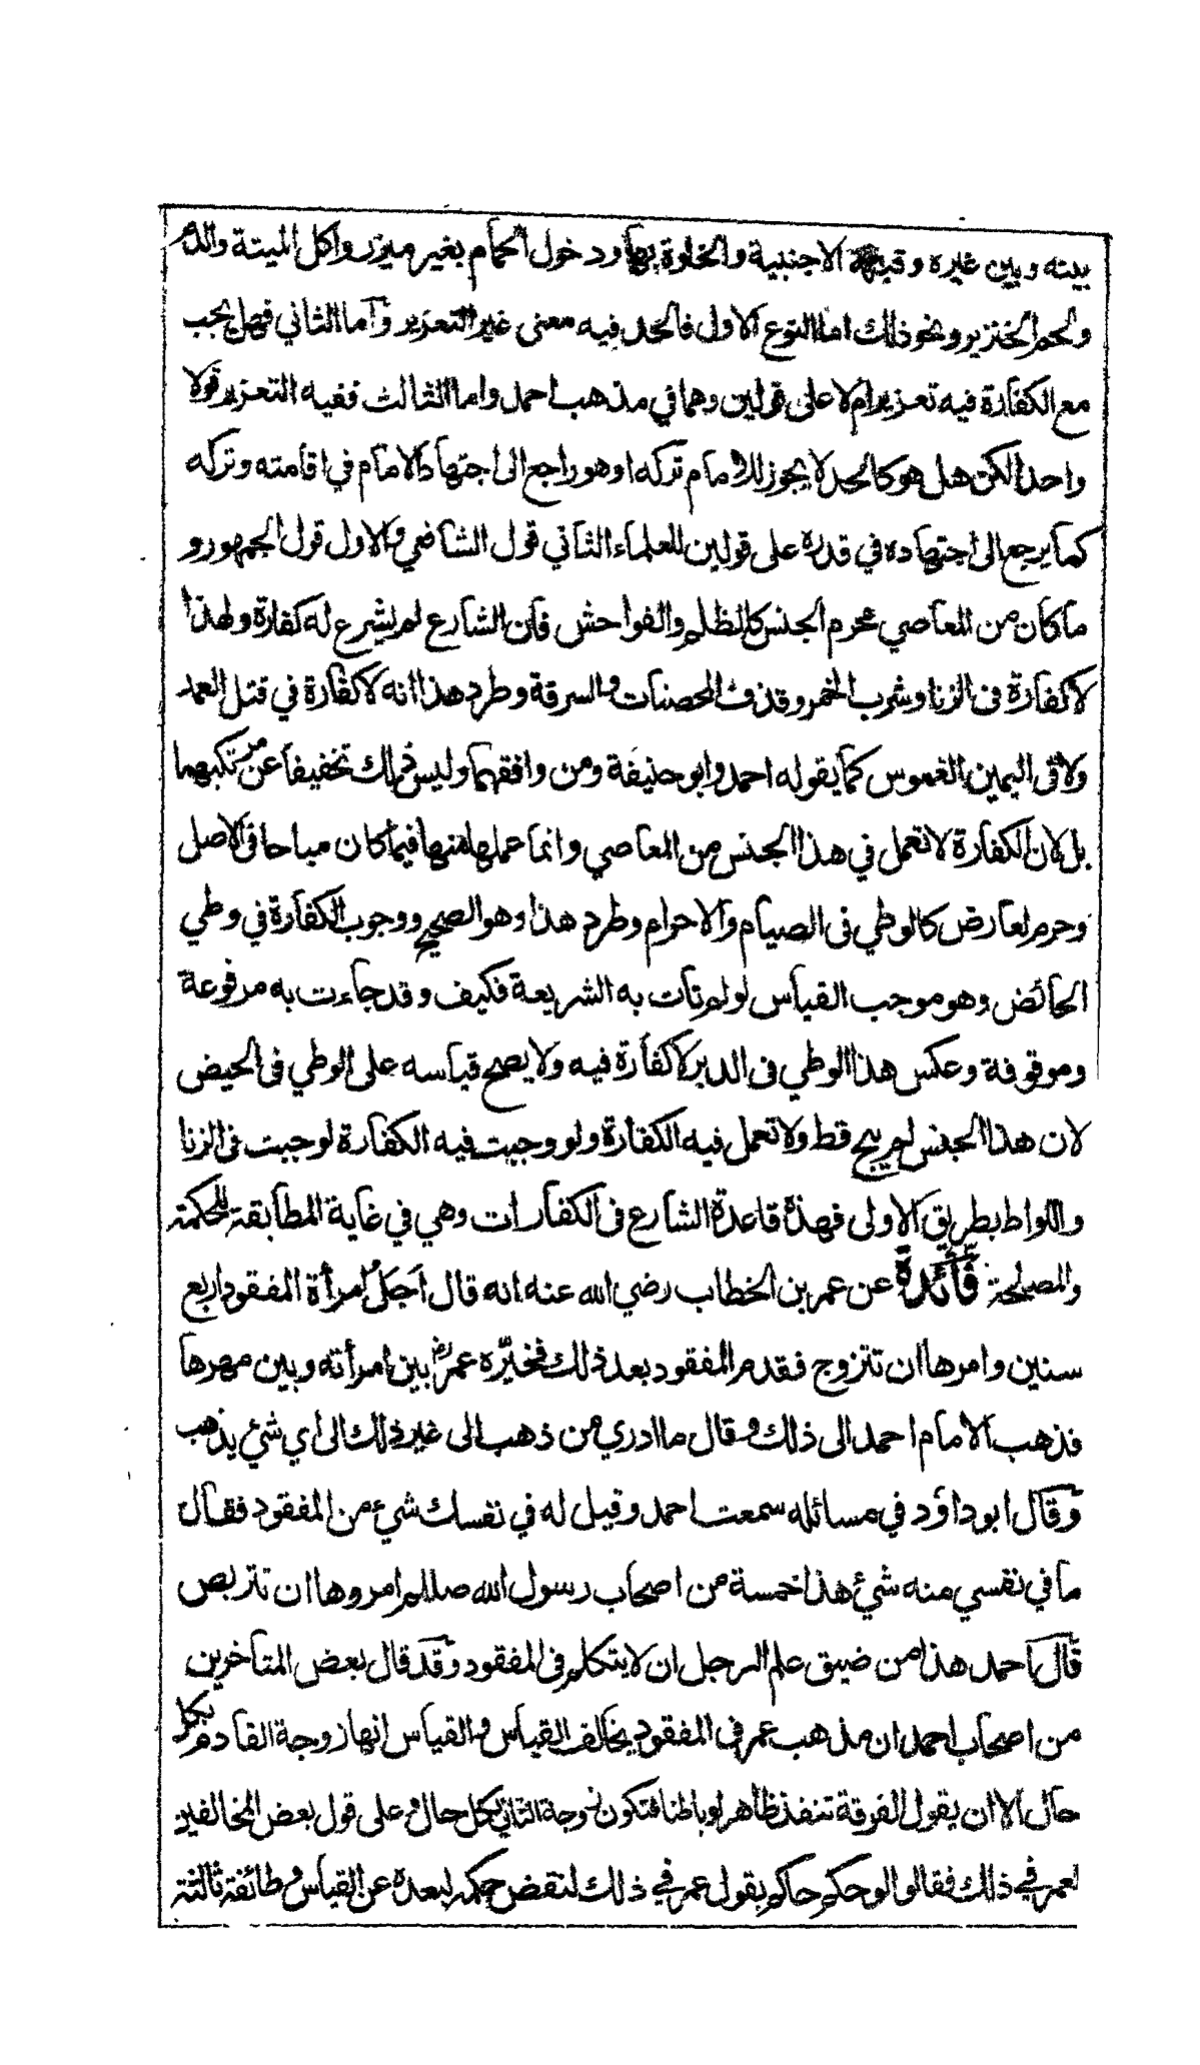 بينه وبين غيره وقبلة الاجنبية والخلوة بها ودخول الحمام بغير ميزر واكل الميتة والدم
ولحم الخنزير ونحو ذلك اما النوع الاول فالحد فيه مغنى عن التعزير وأما الثاني فهل يجب
مع الكفارة فيه تعزير ام لا على قولين وهما في مذهب احمد واما الثالث ففيه التعزير قولا
واحدا لكن هل هو كالحد لا يجوز للامام تركه او هو راجع الى اجتهاد الامام في اقامته وتركه
كما يرجع الى اجتهاده في قدره على قولين للعلماء الثاني قول الشافعي والاول قول الجمهور و
ما كان من المعاصي محرم الجنس كالظلم والفواحش فان الشارع لم يشرع له كفارة ولهذا
لا كفارة فى الزنا وشرب الخمر وقذف المحصنات والسرقة وطرد هذا انه لا كفارة في قتل العمد
ولا فى اليمين الغموس كما يقوله احمد وابو حنيفة ومن وافقهما وليس ذلك تخفيفا عن مرتكبهما
بل لان الكفارة لا تعمل في هذا الجنس من المعاصي وانما عملها منها فيما كان مباحا فى الاصل
وحرم لعارض كالوطي فى الصيام والاحرام وطرد هذا وهو الصحيح ووجوب الكفارة في وطي
الحائض وهو موجب القياس لو لم تات به الشريعة فكيف وقد جاءت به مرفوعة
وموقوفة وعكس هذا الوطي فى الدبر لا كفارة فيه ولا يصح قياسه على الوطي فى الحيض
لان هذا الجنس لم يبح قط ولا تعمل فيه الكفارة ولو وجبت فيه الكفارة لوجبت فى الزنا
واللواط بطريق الاولى فهذه قاعدة الشارع فى الكفارات وهي في غاية المطابقة للحكمة
والمصلحة فَائدة عن عمر بن الخطاب رضي الله عنه انه قال اجل امرأة المفقود اربع
سنين وامرها ان تتزوج فقدم المفقود بعد ذلك فخيّره عمر رض بين امرأته وبين مهرها
فذهب الامام احمد الى ذلك وقال ما ادري من ذهب الى غير ذلك الى أي شئ يذهب
وقال ابو داؤد في مسائله سمعت احمد وقيل له في نفسك شئ من المفقود فقال
ما في نفسي منه شئ هذا خمسة من اصحاب رسول الله صللم امروها ان تتربص
قال احمد هذا من ضيق علم الرجل ان لا يتكلم فى المفقود وقد قال بعض المتأخرين
من اصحاب احمد ان مذهب عمر فى المفقود يخالف القياس والقياس انها زوجة القادم بكل
حال الا ان يقول الفرقة تنفذ ظاهرا وباطنا فتكون زوجة الثاني بكل حال وعلى قول بعض المخالفين
لعمر في ذلك فقالوا لو حكم حاكم بقول عمر في ذلك لنقض حكمه لبعده عن القياس وطائفة ثالثة